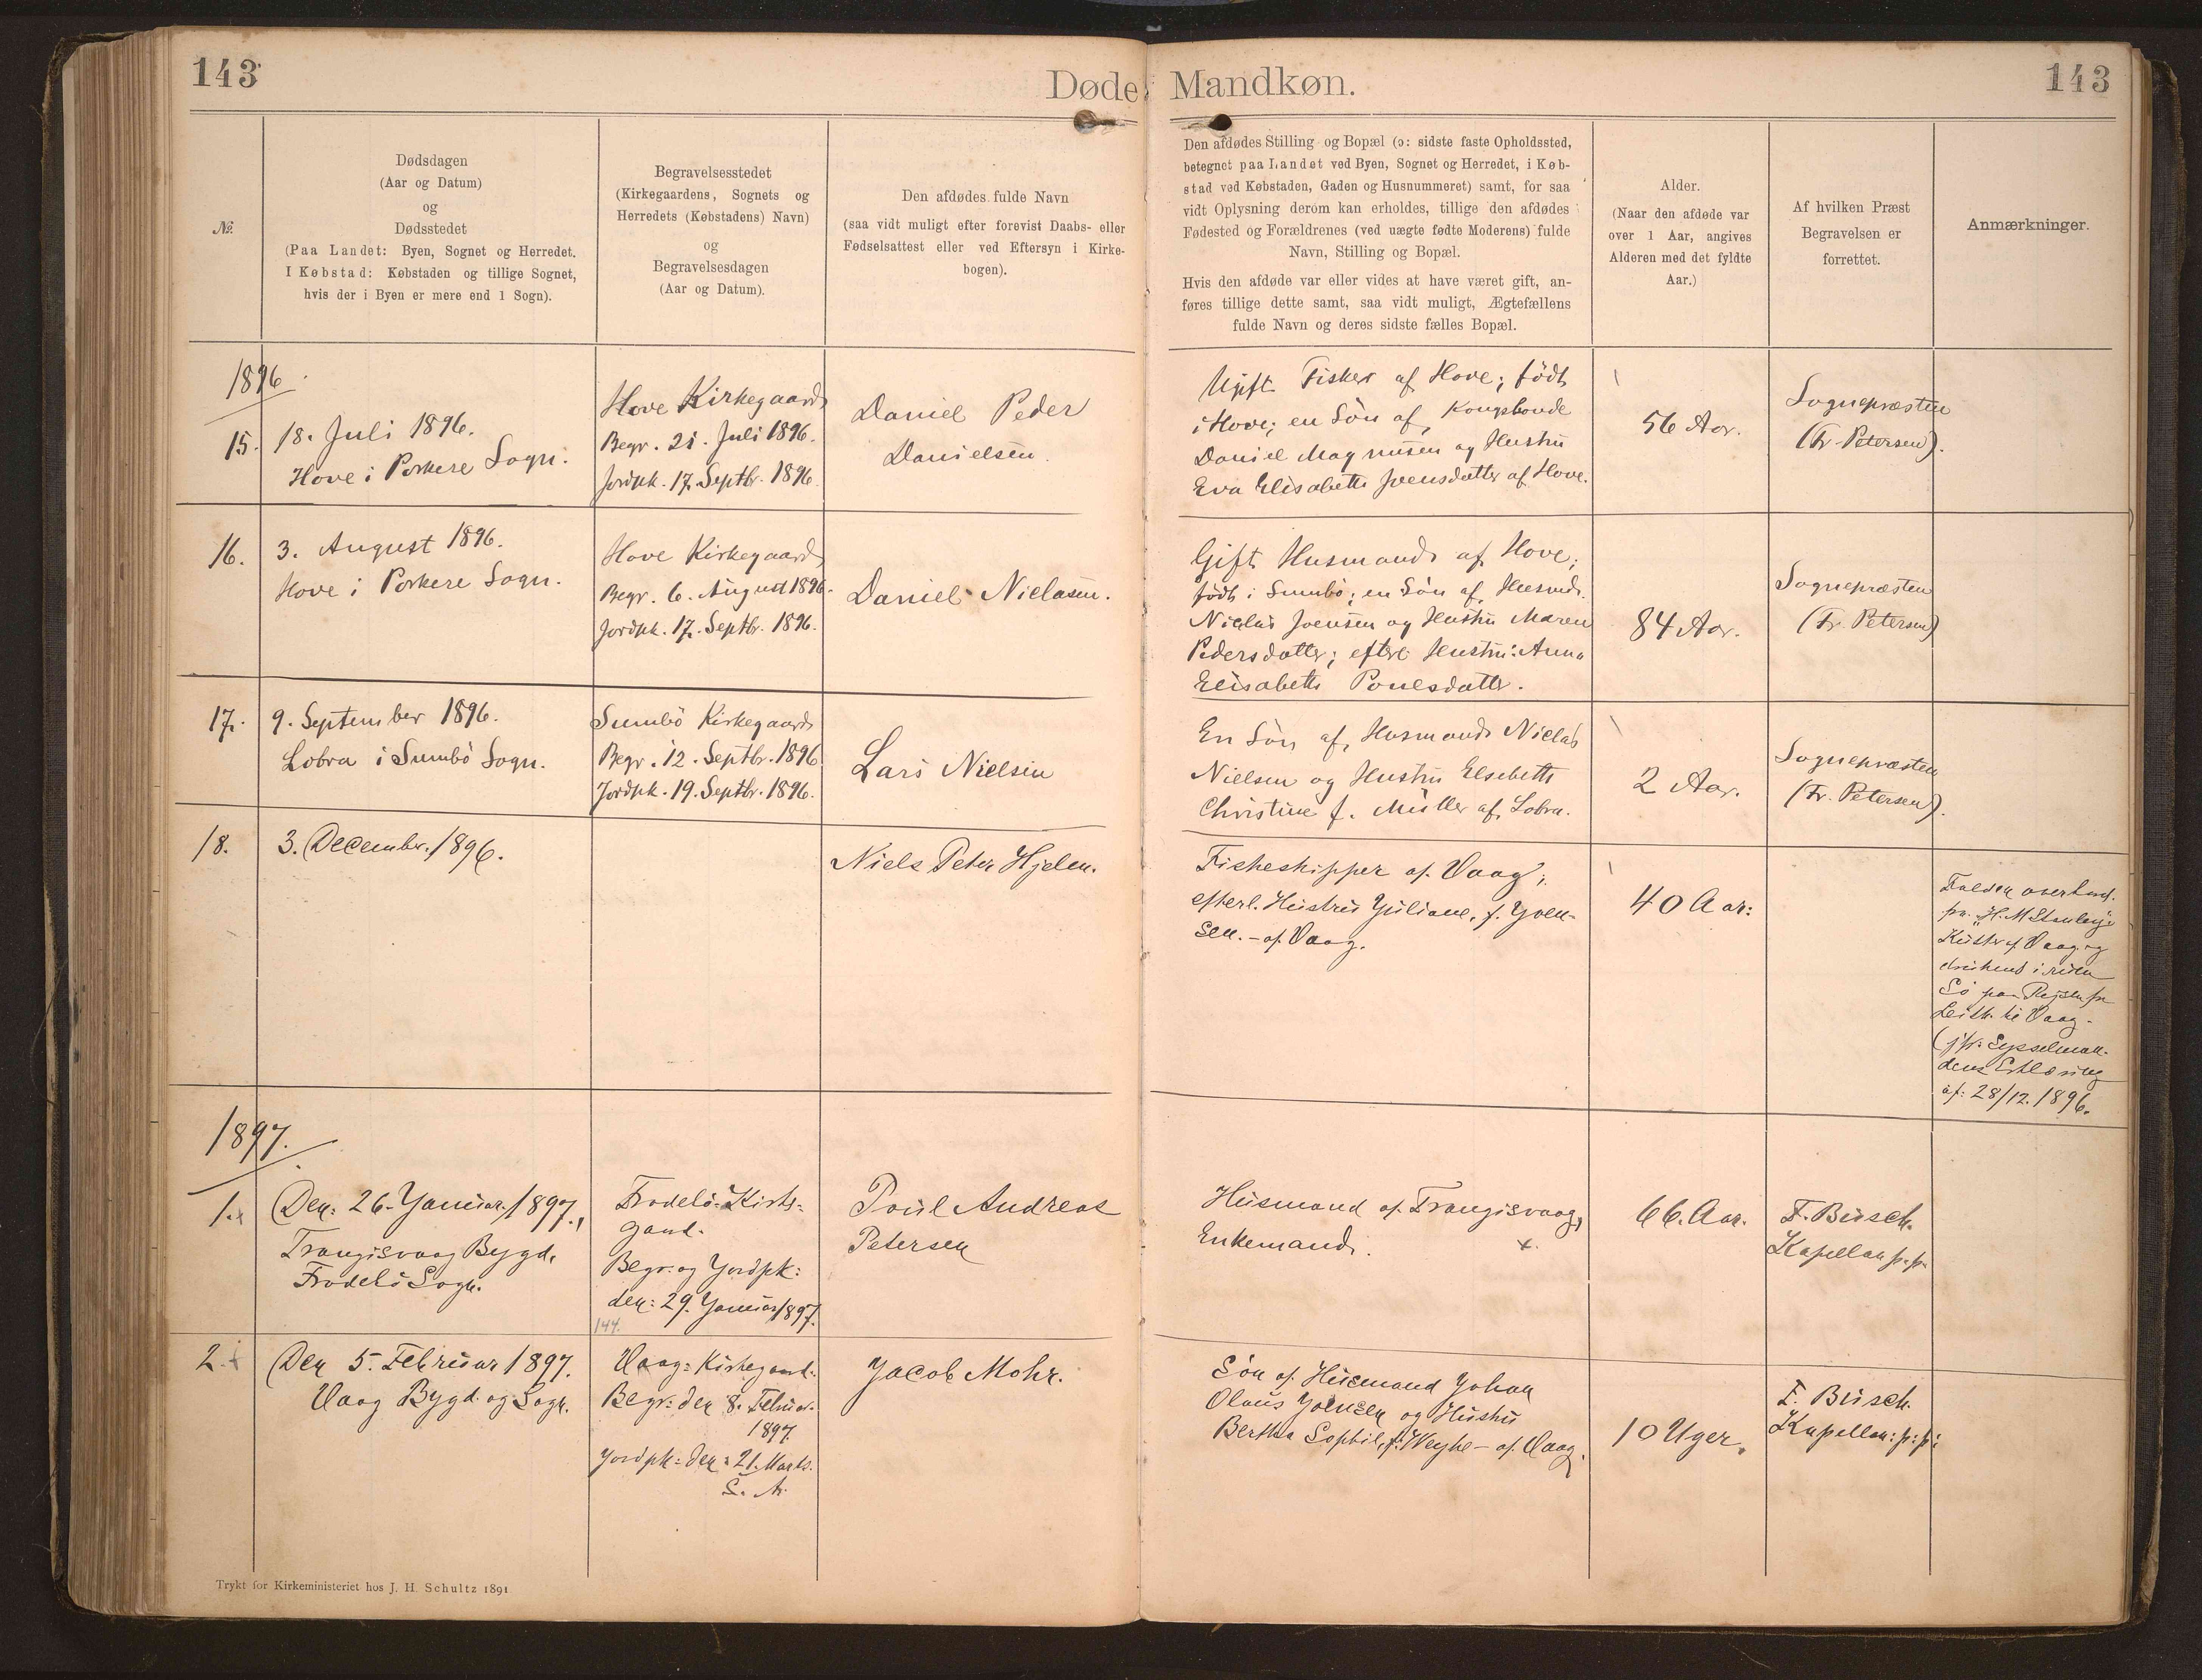 143
Døde Mandkøn.
143
№
Dødsdagen
(Aar og Datum)
og
Dødsstedet
(Paa Landet: Byen, Sognet og Herredet.
I Købstad: Købstaden og tillige Sognet,
hvis der i Byen er mere end 1 Sogn).
Begravelsesstedet
(Kirkegaardens, Sognets og
Herredets (Købstadens) Navn)
og
Begravelsesdagen
(Aar og Datum).
Den afdødes fulde Navn
(saa vidt muligt efter forevist Daabs- eller
Fødselsattest eller ved Eftersyn i Kirke-
bogen).
Den afdødes Stilling og Bopæl (ɔ: sidste faste Opholdssted,
betegnet paa Landet ved Byen, Sognet og Herredet, i Køb-
stad ved Købstaden, Gaden og Husnummeret) samt, for saa
vidt Oplysning derom kan erholdes, tillige den afdødes
Fødested og Forældrenes (ved uægte fødte Moderens) fulde
Navn, Stilling og Bopæl.
Hvis den afdøde var eller vides at have været gift, an-
føres tillige dette samt, saa vidt muligt, Ægtefællens
fulde Navn og deres sidste fælles Bopæl.
Alder.
(Naar den afdøde var
over 1 Aar, angives
Alderen med det fyldte
Aar.)
Af hvilken Præst
Begravelsen er
forrettet.
Anmærkninger.
1896
15.
18. Juli 1896.
Hove i Porkere Sogn.
Hove Kirkegaard
Begr. 21. Juli 1896.
Jordpk. 17. Septbr. 1896.
Daniel Peder
Danielsen.
Ugift Fisker af Hove; født
i Hove; en Søn af Kongsbonde
Daniel Magnusen og Hustru
Eva Elisabeth Joensdatter af Hove.
56 Aar.
Sognepræsten
(Fr. Petersen).
16.
3. August 1896.
Hove i Porkere Sogn.
Hove Kirkegaard
Begr. 6. August 1896.
Jordpk. 17. Septbr. 1896.
Daniel Nielasen.
Gift Husmand af Hove;
født i Sumbö; en Søn af Husmd.
Niclas Joensen og Hustru Maren
Pedersdatter; efterl. Hustru: Anna
Elisabeth Poulsdatter.
84 Aar.
Sognepræsten
(Fr. Petersen)
17.
9. September 1896.
Lobra i Sumbö Sogn.
Sumbö Kirkegaard
Begr. 12. Septbr. 1896
Jordpk. 19. Septbr. 1896.
Lars Nielsen
En Søn af Husmand Niclas
Nielsen og Hustru Elsebeth
Christine f. Müller af Lobra.
2 Aar.
Sognepræsten
(Fr. Petersen).
18.
3. December 1896.
Niels Peter Hjelm.
Fiskeskipper af Vaag;
efterl. Hustru Juliane, f. Joen-
sen. - af Vaag.
40 Aar:
Falden overbord
fra "H. M. Stanley"
Kutter af Vaag og
druknet i rum
Sø paa Rejsen fra
Leith til Vaag -
(jfr. Sysselman-
dens Erklæring
af: 28/12. 1896.
1897.
1.
Den: 26. Januar 1897.,
Trangisvaag Bygd,
Frodebö Sogn.
Frodebö-Kirke-
gaard.
Begr. og Jordpk:
den: 29. Januar 1897.
144.
Poul Andreas
Petersen
Husmand af Trangisvaag,
Enkemand.
66. Aar.
F. Busch.
Kapellan p. p.
2.
Den 5. Februar 1897.
Vaag Bygd og Sogn.
Vaag-Kirkegaard:
Begr: den 8. Februar
1897.
Jordpk: den: 21. Marts.
S. A.
Jacob Mohr.
Søn af Husmand Johan
Olaus Joensen og Hustru
Bertha Sophie, f. Weyhe - af Vaag.
10 Uger.
F. Busch.
Kapellan: p: p:
Trykt for Kirkeministeriet hos J. H. Schultz 1891